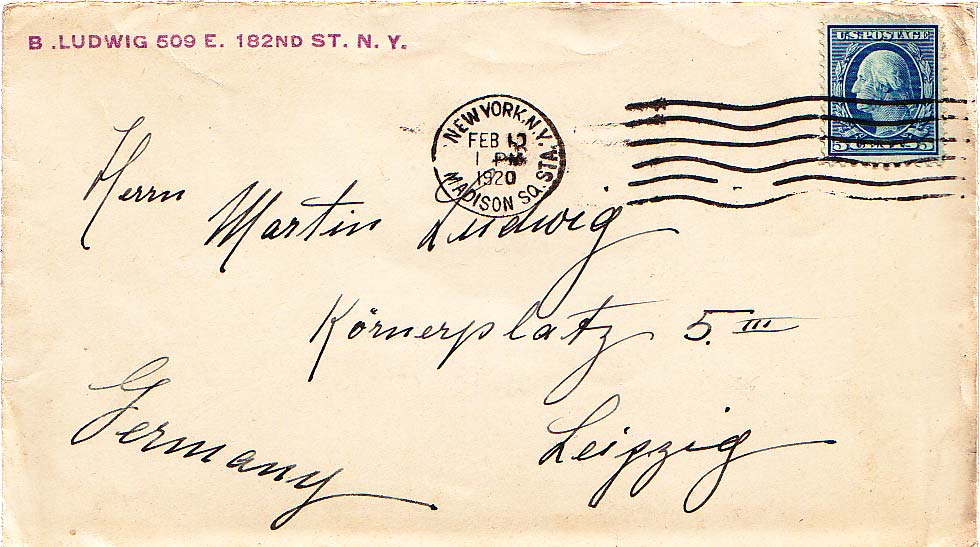 B. LUDWIG 509 E. 182ND ST. N. Y.
U.S. POSTAGE
5 CENTS 5
NEW YORK, N.Y.
FEB
1 PM
1920
MADISON SQ. STA.
Herrn
Martin Ludwig
Körnerplatz 5. III
Leipzig
Germany